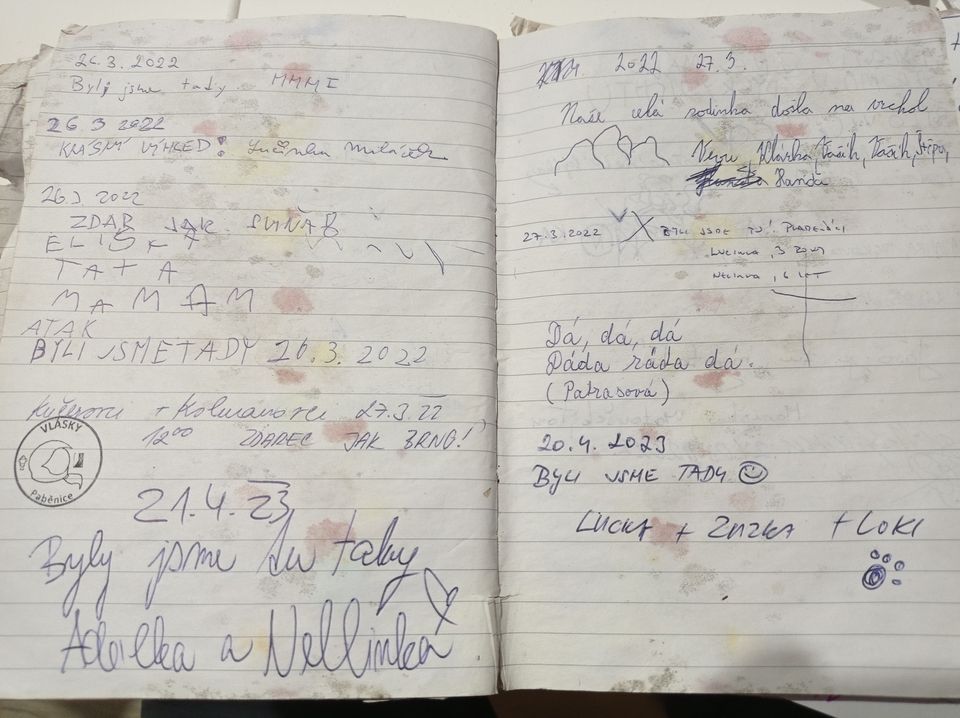 26.3.2022
Byly jsme tady MMMI
26 3 2022
KRÁSNÝ VÝHLED!
26.3.2022
ZDAR JAK SVIŇA
ELIŠKA
TATA
MAMAM
ATAK
BYLI JSME TADY 26.3.2022
+ 27.3.22
12⁰⁰ ZDAREC JAK BRNO!
VLÁSKY
Paběnice
21.4.23
Byly jsme tu taky
Adélka a Nellinka
2022 27.3.
Naše celá rodinka došla na vrchol
Klárka, Vašík, Vašík,
Handa
27.3.2022 BYLI JSME TU!
LUCINKA, 3 ROKY
6 LET
Dá, dá, dá
Dáda ráda dá.
(Patrasová)
20.4.2023
BYLI JSME TADY
LUCKA + ZUZKA + LOKI